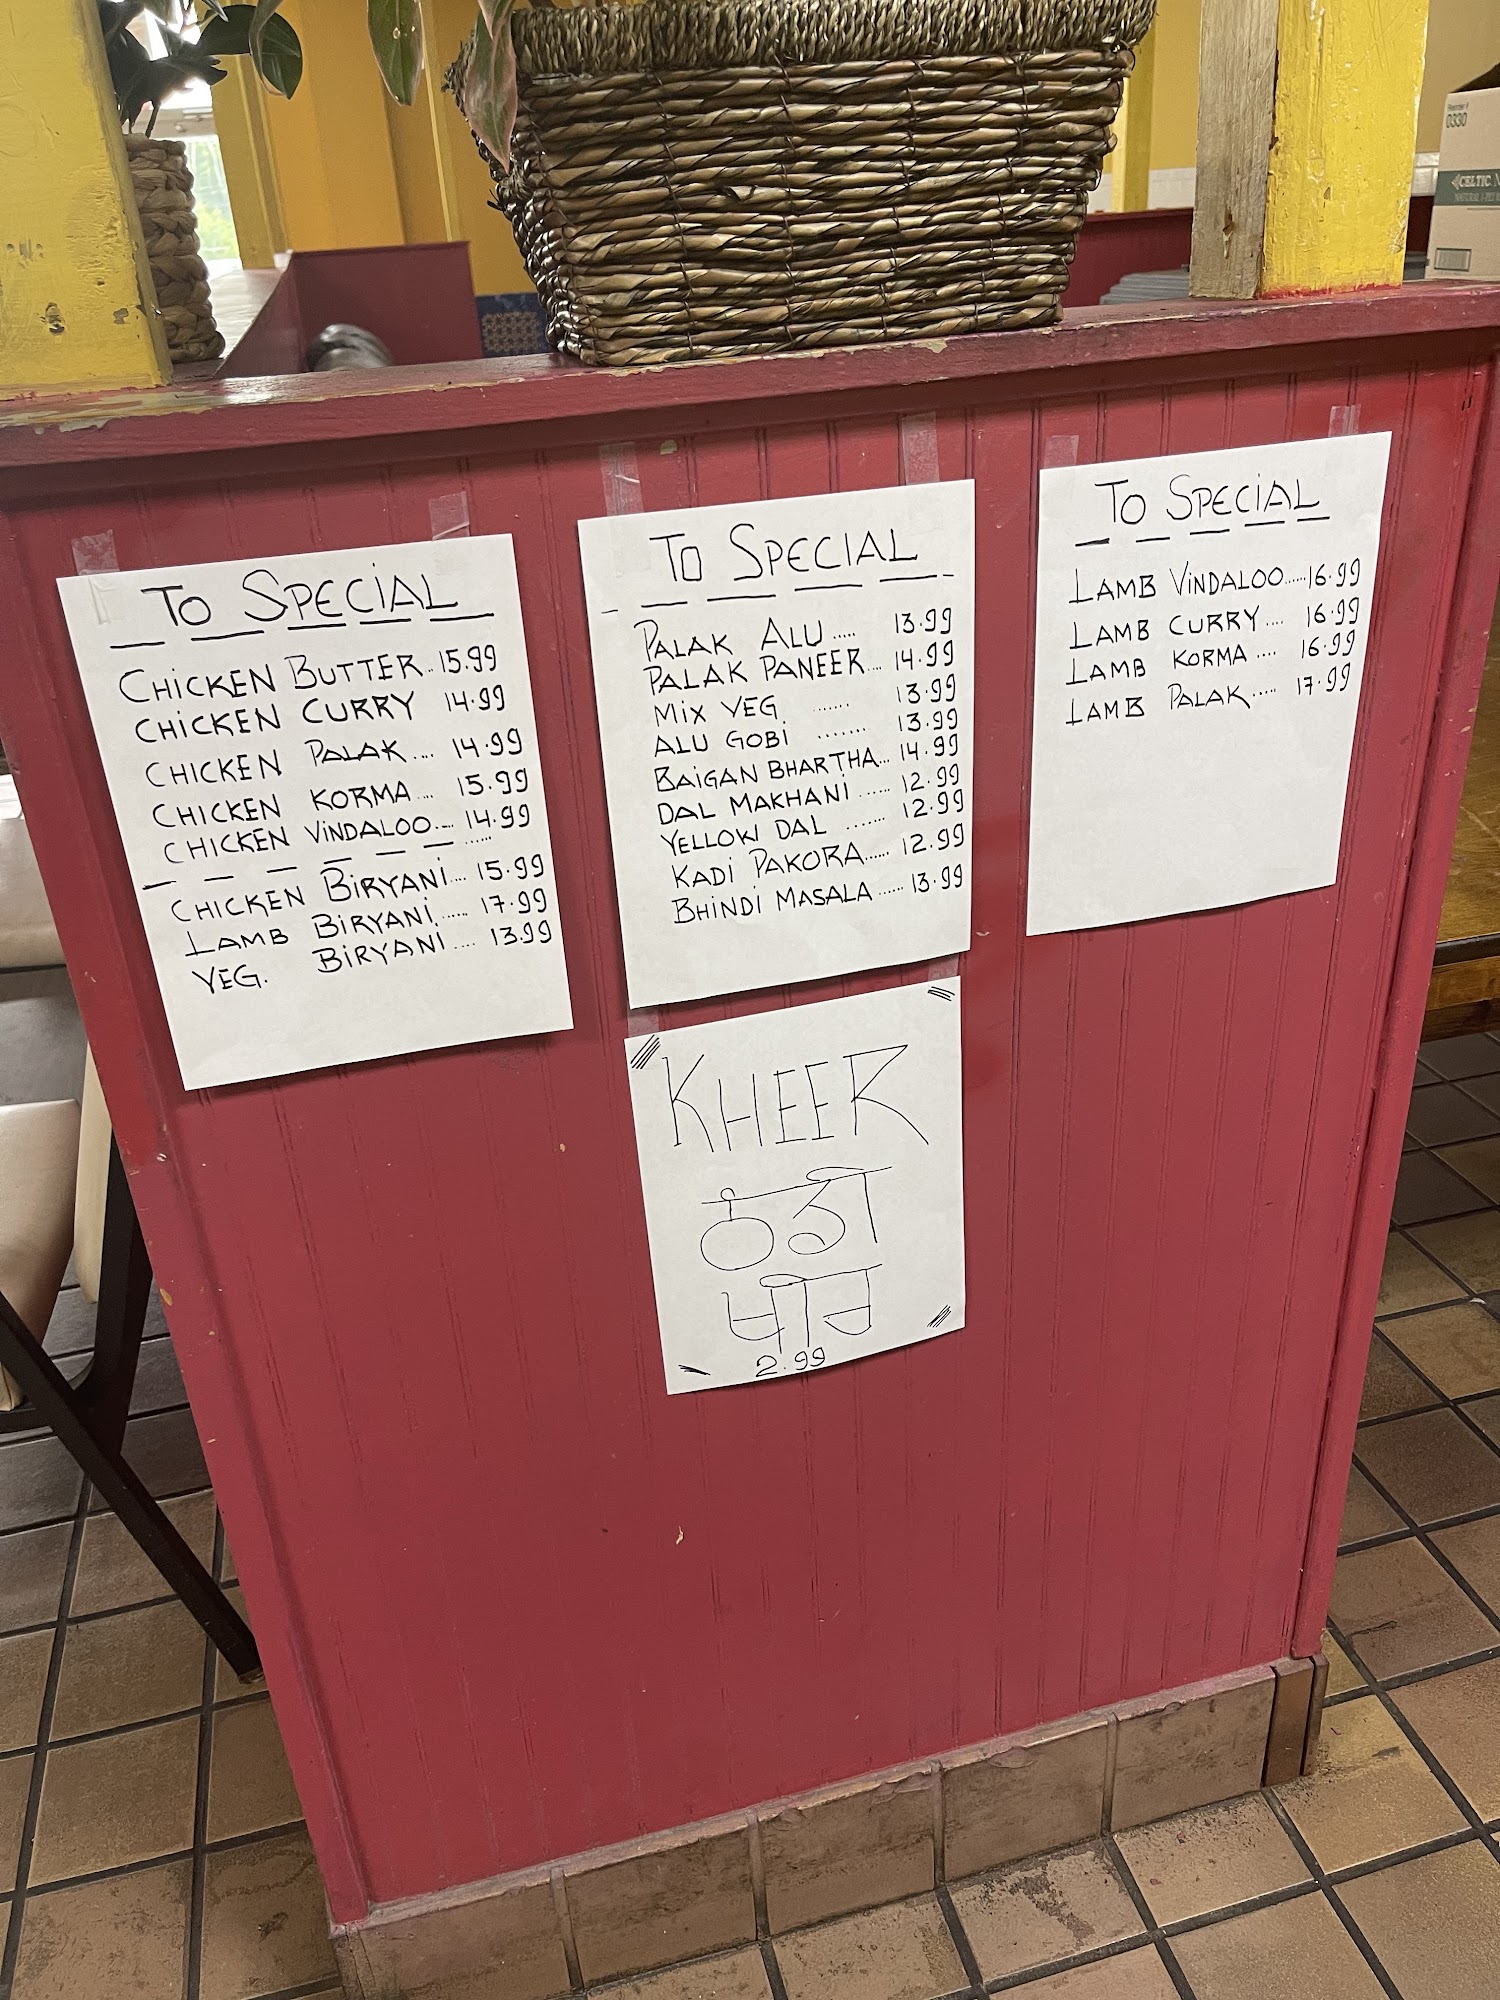 TO SPECIAL
CHICKEN BUTTER..15.99
CHICKEN CURRY 14.99
CHICKEN PALAK.... 14.99
CHICKEN KORMA .... 15.99
CHICKEN VINDALOO.... 14.99
CHICKEN BIRYANI.... 15.99
LAMB BIRYANI...... 17.99
VEG. BIRYANI .... 13.99
TO SPECIAL
PALAK ALU ..... 13.99
PALAK PANEER.... 14.99
MIX VEG ...... 13.99
ALU GOBI ........ 13.99
BAIGAN BHARTHA... 14.99
DAL MAKHANI ...... 12.99
YELLOW DAL ....... 12.99
KADI PAKORA...... 12.99
BHINDI MASALA ...... 13.99
TO SPECIAL
LAMB VINDALOO.....16.99
LAMB CURRY .... 16.99
LAMB KORMA .... 16.99
LAMB PALAK..... 17.99
KHEER
ਠੰਡੀ
ਖੀਰ
2.99
0330
CELTIC